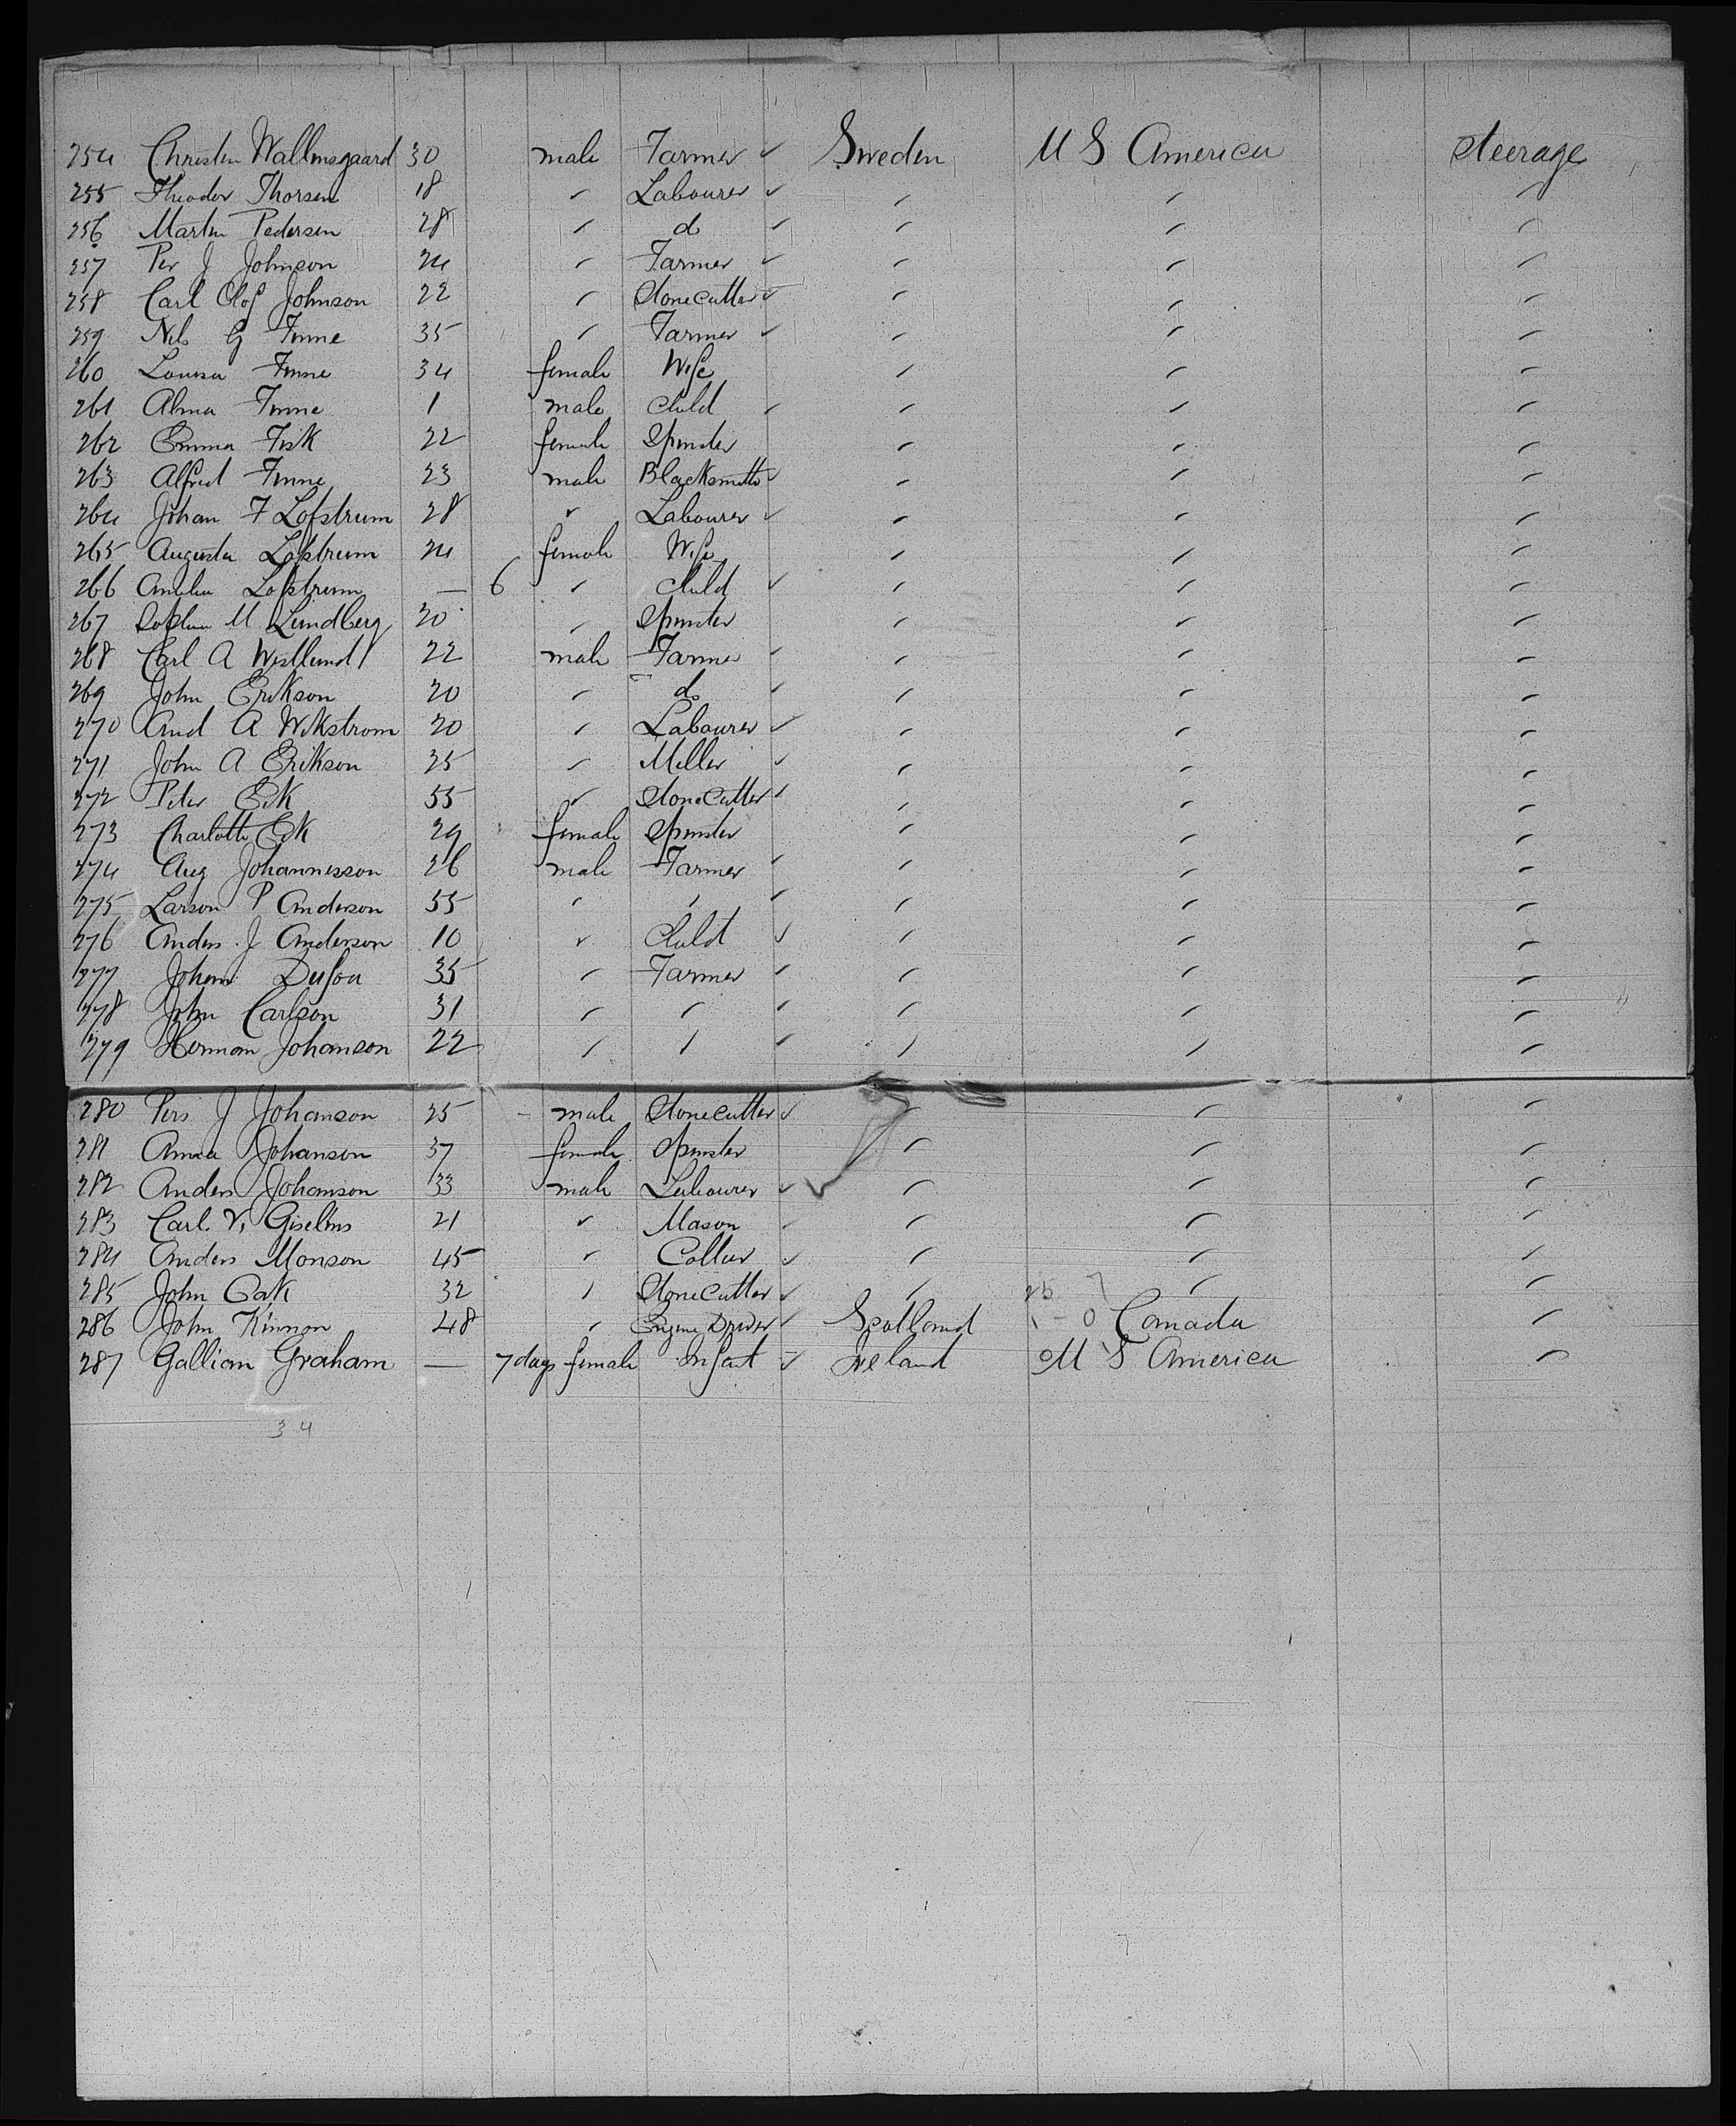 254 Christen Wallensgaard 30 male Farmer ✓ Sweden U S America Steerage
255 Theodor Thorsen 18 " Labourer ✓ " " "
256 Martin Pedersen 28 " do ✓ " " "
257 Per J Johnson 24 " Farmer ✓ " " "
258 Carl Olof Johnson 22 " Stonecutter ✓ " " "
259 Nils G Finne 35 " Farmer ✓ " " "
260 Louisa Finne 34 female Wife " " "
261 Alma Finne 1 male Child ✓ " " "
262 Emma Fisk 22 female Spinster " " "
263 Alfred Finne 23 male Blacksmith ✓ " " "
264 Johan F Lofstrum 28 " Labourer ✓ " " "
265 Augusta Lofstrum 24 female Wife " " "
266 Amelia Lofstrum — 6 " Child ✓ " " "
267 M Lundberg 20 " Spinster " " "
268 Carl A Westlund 22 male Farmer ✓ " " "
269 John Erikson 20 " do ✓ " " "
270 And A Wikstrom 20 " Labourer ✓ " " "
271 John A Erikson 25 " Miller ✓ " " "
272 Peter Ek 55 " Stonecutter ✓ " " "
273 Charlotte Ek 29 female Spinster " " "
274 Aug Johannesson 26 male Farmer ✓ " " "
275 Larson P Anderson 55 " " ✓ " " "
276 Anders J Anderson 10 " Child ✓ " " "
277 Johan 35 " Farmer ✓ " " "
278 John Carlson 31 " " ✓ " " "
279 Herman Johanson 22 " " ✓ " " "
280 Pers J Johanson 25 male Stonecutter ✓ " " "
281 Anna Johanson 37 female Spinster " " "
282 Anders Johanson 33 male Labourer ✓ " " "
283 Carl V. Giselins 21 " Mason ✓ " " "
284 Anders Monson 45 " Collier ✓ " " "
285 John Oak 32 " Stonecutter ✓ " " "
286 John Kinnon 48 " Engine Driver ✓ Scotland Canada "
287 Gallian Graham — 7 days female Infant ✓ Ireland U S America "
34